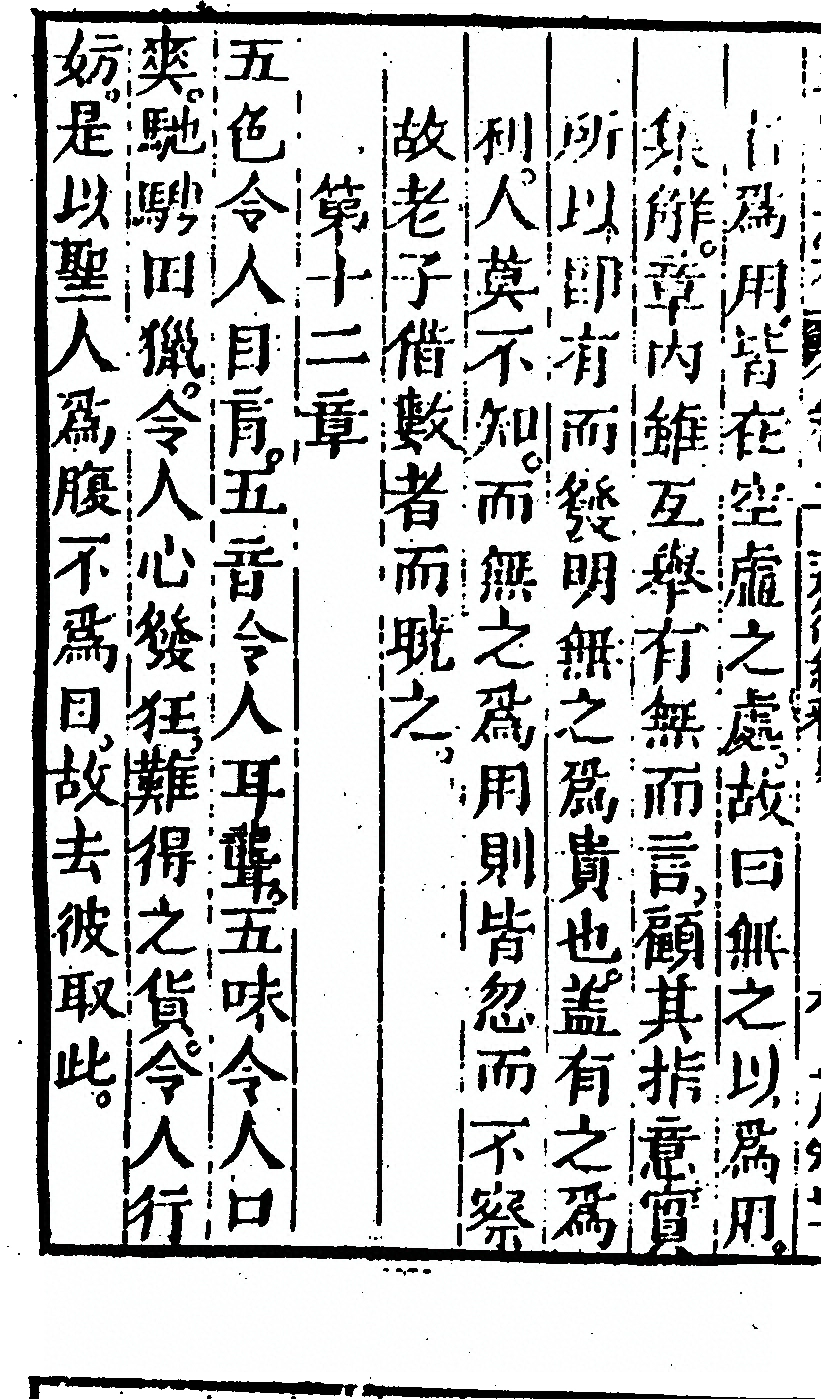 者爲用皆在空虛之處故曰無之以爲用。
集解。章内雖互舉有無而言，顧其指意實
所以卽有而發明無之爲貴也。盖有之爲
利。人莫不知。而無之爲用則皆忽而不察
故老子借數者而曉之。
第十二章
五色令人目盲。五音令人耳聾。五味令人口
爽。馳騁田獵。令人心發狂，難得之貨。令人行
妨。是以聖人爲腹不爲目，故去彼取此。